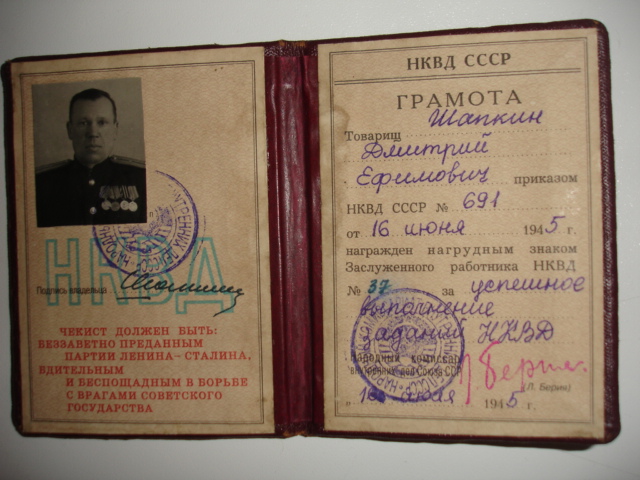 НКВД
Подпись владельца
ЧЕКИСТ ДОЛЖЕН БЫТЬ:
БЕЗЗАВЕТНО ПРЕДАННЫМ
ПАРТИИ ЛЕНИНА - СТАЛИНА,
БДИТЕЛЬНЫМ
И БЕСПОЩАДНЫМ В БОРЬБЕ
С ВРАГАМИ СОВЕТСКОГО
ГОСУДАРСТВА
НКВД СССР
ГРАМОТА
Товарищ Шапкин
Дмитрий
Ефимович приказом
НКВД СССР № 691
от 16 июня 1945 г.
награжден нагрудным знаком
Заслуженного работника НКВД
№ 37 за успешное
выполнение
заданий НКВД
Народный комиссар
внутренних дел Союза ССР
Берия
(Л. Берия)
„ 16 июня 1945 г.